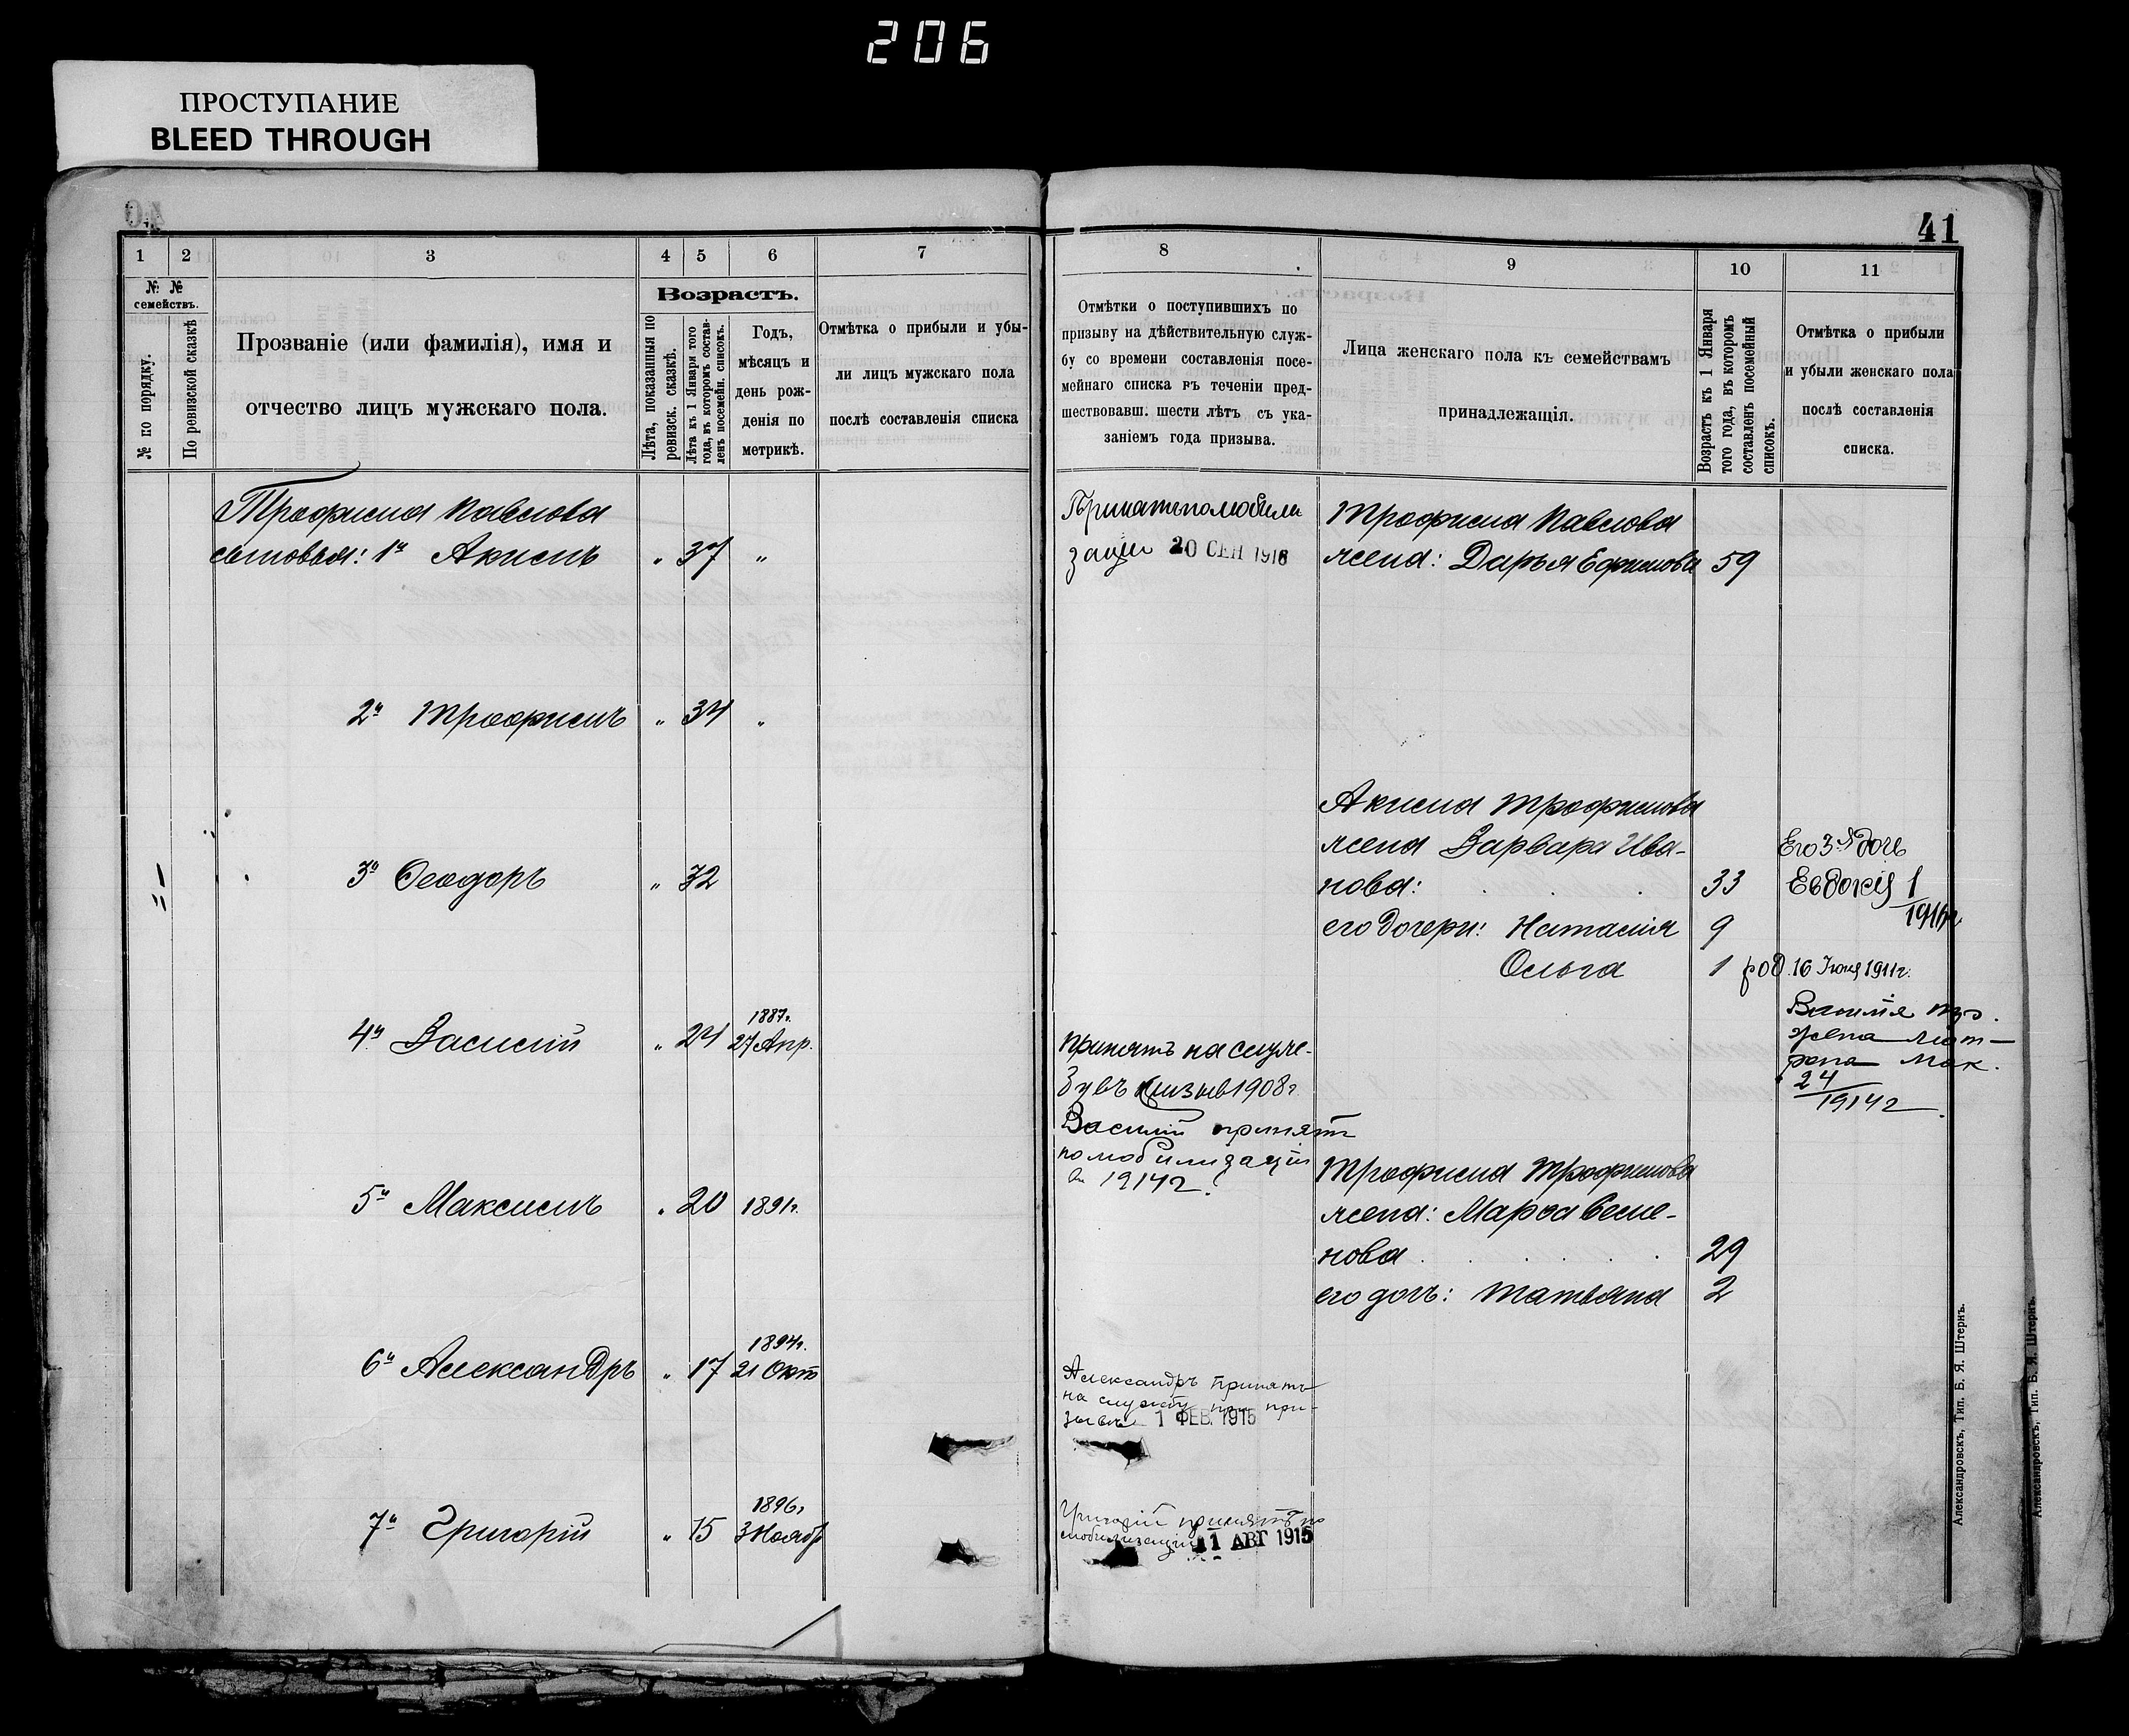 206
ПРОСТУПАНИЕ
BLEED THROUGH
41
1 2 3 4 5 6 7
№ № семействъ.
№ по порядку.
По ревизской сказкѣ
Прозваніе (или фамилія), имя и
отчество лицъ мужскаго пола.
Возрастъ.
Лѣта, показанныя по
ревизск. сказкѣ.
Лѣта къ 1 Января того
года, въ которомъ состав-
ленъ посемейн. списокъ.
Годъ,
мѣсяцъ и
день рож-
денія по
метрикѣ.
Отмѣтка о прибыли и убы-
ли лицъ мужскаго пола
послѣ составленія списка
Трофима Павлова
сыновья: 1й Акимъ " 37 "
2й Трофимъ " 34 "
3й Ѳеодоръ " 32
1887г.
4й Василій " 24 27 Апр.
5й Максимъ " 20 1891г.
1894г.
6й Александръ " 17 21 Окт
1896г
7й Григорій " 15 3 Ноябр
8 9 10 11
Отмѣтки о поступившихъ по
призыву на дѣйствительную служ-
бу со времени составленія посе-
мейнаго списка въ теченіи пред-
шествовавш. шести лѣтъ съ ука-
заніемъ года призыва.
Лица женскаго пола къ семействамъ
принадлежащія.
Возрастъ къ 1 Января
того года, въ которомъ
составленъ посемейный
списокъ.
Отмѣтка о прибыли
и убыли женскаго пола
послѣ составленія
списка.
Принятъ по мобили
заціи 20 СЕН 1916
принятъ на служ-
бу въ призывъ 1908г
Василій принят
по мобилизаціи
в 1914г.
Александръ принятъ
на службу при при-
зывѣ 1 ФЕВ. 1915
Григорій принятъ по
мобилизаціи 11 АВГ 1915
Трофима Павлова
жена: Дарья Ефимова 59
Акима Трофимова
жена Варвара Ива-
нова: 33
его дочери: Наталія 9
Ольга 1 род. 16 Іюня 1911г.
Трофима Трофимова
жена: Марѳа Семе-
нова 29
его дочь: Татьяна 2
Его 3-я дочь
Евдокія 1
жена
24
1914г.
Александровскъ, Тип. Б. Я. Штернъ.
Александровскъ, Тип. Б. Я. Штернъ.